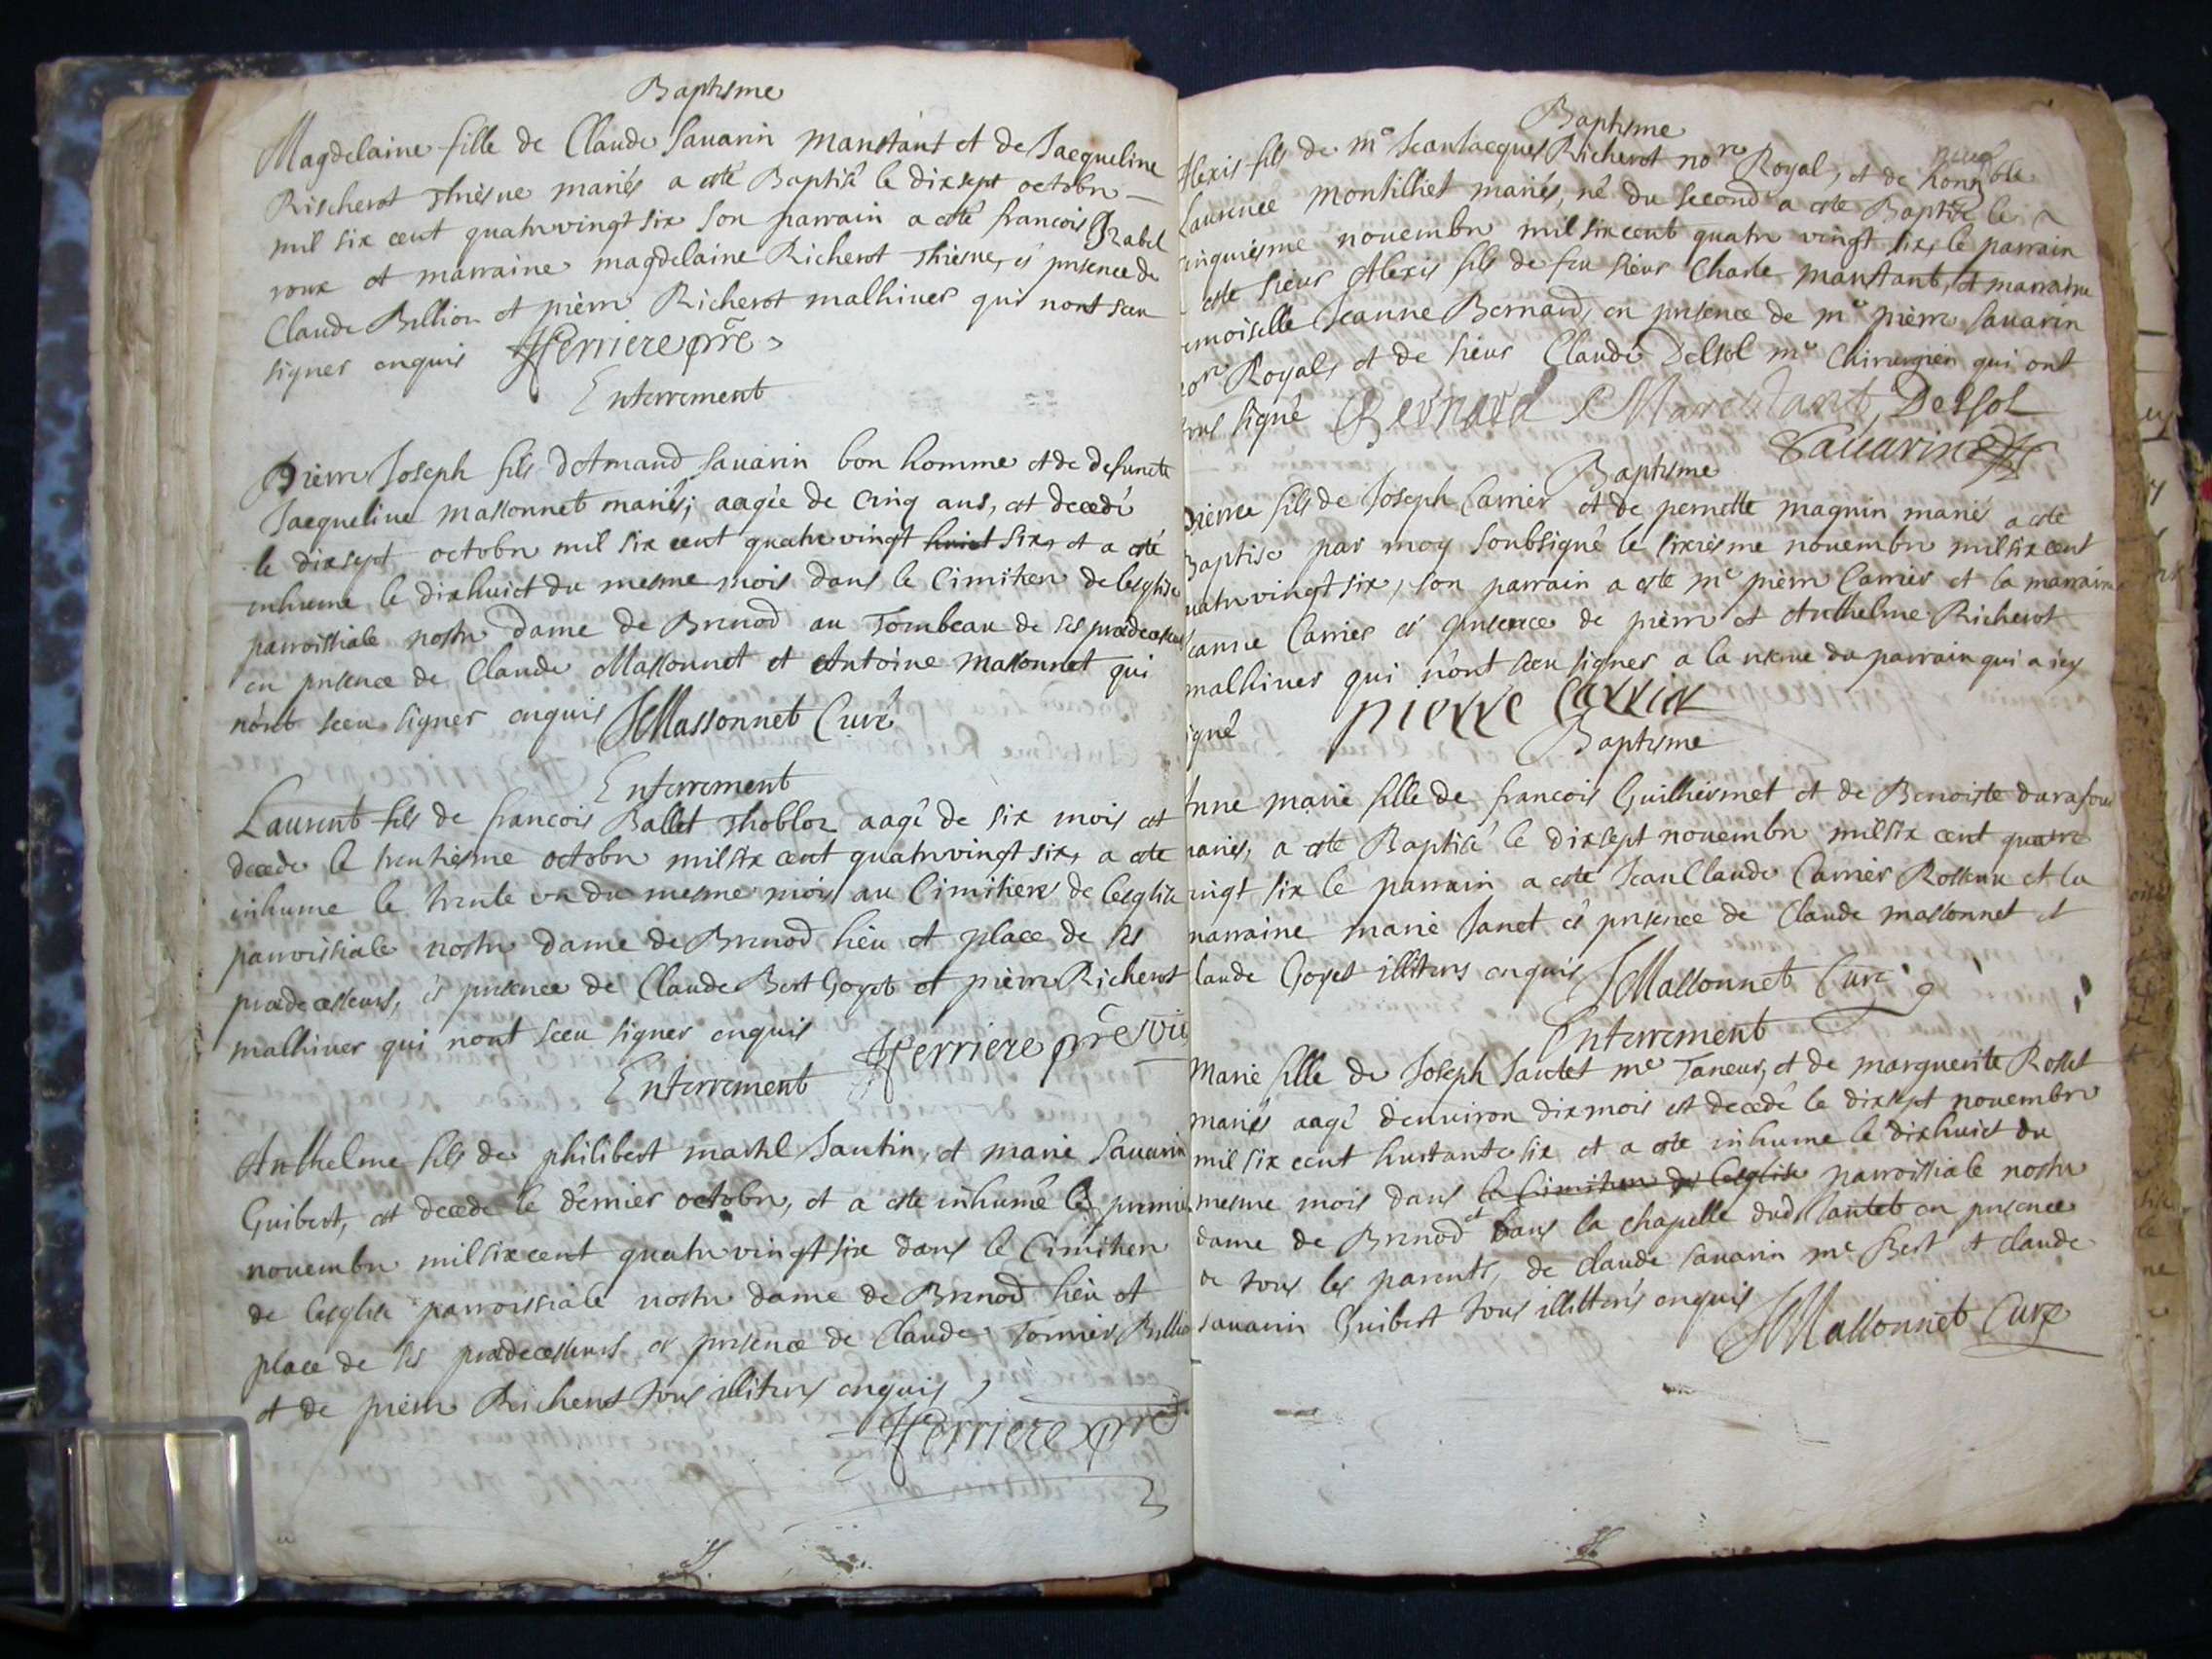 Baptisme
Magdelaine fille de Claude Sauarin Marchant et de Jacqueline
Richerot Thiesue mariés a esté Baptisé le dixsept octobre
mil six cent quatrevingt six son parrain a esté francois Brabel
roux et marraine magdelaine Richerot Thiesue, és presence de
Claude Billion et pierre Richerot malhiver qui nont sceu
signer enquis Ferriere pre
Enterrement
Pierre Joseph fils dAmand Sauarin bon homme et de defuncte
Jacqueline Massonnet mariés; aagée de Cinq ans, est decedé
le dixsept octobre mil six cent quatrevingt huict six, et a esté
inhume le dixhuict du mesme mois dans le Cimitiere de leglise
parroissiale nostre Dame de Brenod au Tombeau de ses predecesseurs
en presence de Claude Massonnet et Antoine Massonnet qui
nont sceu signer enquis JMassonnet Curé
Enterrement
Laurent fils de francois Ballet Thobloz aagé de six mois est
decede le trentiesme octobre milsix cent quatrevingt six, a esté
inhume le trente un du mesme mois au Cimitiere de leglise
parroissiale nostre Dame de Brenod lieu et place de ses
predecesseurs, és presence de Claude Bert Goyot et pierre Richerot
malhiver qui nont sceu signer enquis Ferriere pre vic
Enterrement
Anthelme fils de philibert martel Santin, et marie Sauarin
Guibert, est decede le dernier octobre, et a esté inhumé le premie
nouembre milsixcent quatrevingt six dans le Cimitiere
de leglise parroissiale nostre dame de Brenod lieu et
place de ses predecesseurs és presence de Claude Tornier Billio
et de pierre Richerot tous illiteres enquis
Ferriere pre
Baptisme
Alexis fils de me Jean Jacques Richerot nore Royal, et de honnble
Laurence Montilliet mariés, né du second a esté Baptisé le
cinquiesme nouembre mil six cent quatre vingt six, le parrain
esté sieur Alexis fils de feu sieur Charle marchant, et marraine
emoiselle Jeanne Bernard, en presence de me pierre Sauarin
nore Royal, et de sieur Claude Delsol me Chirurgien qui ont
tous signé Bernard Marchant, Delsol
Sauarin
Baptisme
Pierre fils de Joseph Carrier et de pernette maguin mariés a esté
Baptise par moy soubsigné le sixiesme nouembre mil six cent
uatrevingt six, son parrain a esté me pierre Carrier et la marraine
eanne Carrier és presence de pierre et Anthelme Richerot
malhiver qui nont sceu signer a la reserue du parrain qui a icy
igné pierre Carrier
Baptisme
Anne marie fille de francois Guillermet et de Benoiste darafour
mariés, a esté Baptisé le dixsept nouembre milsix cent quatre
vingt six le parrain a esté Jean Claude Carrier Rosseau et la
marraine marie Janet és presence de Claude massonnet et
laude Goyet illiteres enquis JMassonnet Curé
Enterrement
Marie fille de Joseph Sautet me Taneur, et de marguerite Rosset
mariés aagé denuiron dix mois est decedé le dixsept nouembre
mil six cent huictante six et a esté inhume le dixhuict du
mesme mois dans le Cimitiere de leglise parroissiale nostre
dame de Brenod et dans la chapelle dud Sautet en presence
de tous les parents, de claude sauarin me Bert et claude
sauarin Guibert tous illiterés enquis JMassonnet Curé